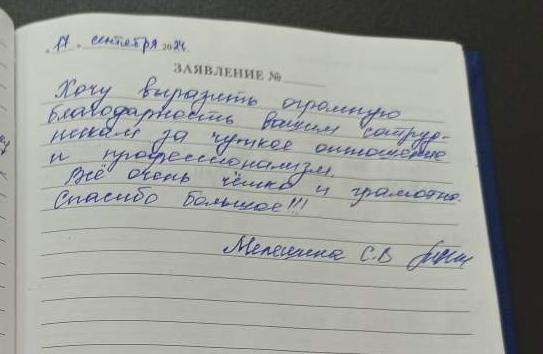 „17" сентября 2024
ЗАЯВЛЕНИЕ №
Хочу выразить огромную
благодарность вашим сотруд-
никам за чуткое отношение
и профессионализм.
Всё очень чётко и грамотно.
Спасибо большое!!!
С.В